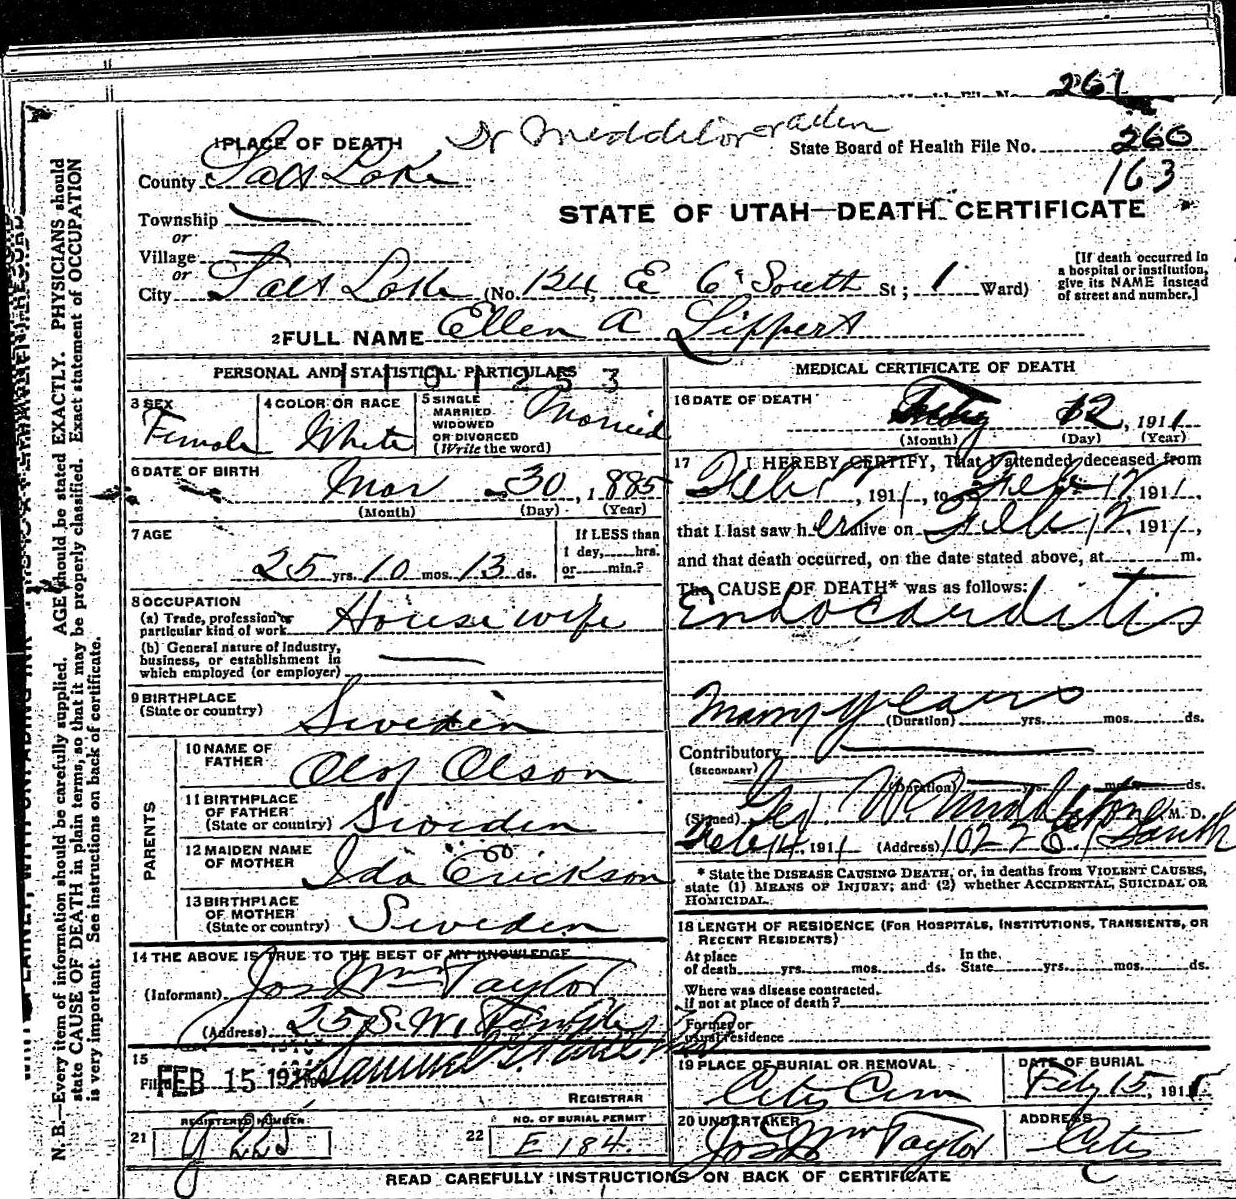 261
1 PLACE OF DEATH
Dr Middleton or allen
State Board of Health File No. 260
163
County Salt Lake
STATE OF UTAH—DEATH CERTIFICATE
Township
or
Village
or
City Salt Lake (No. 124, E 6 South St; 1 Ward)
[If death occurred in
a hospital or institution,
give its NAME instead
of street and number.]
2 FULL NAME Ellen A Lippert
PERSONAL AND STATISTICAL PARTICULARS
3 SEX
Female
4 COLOR OR RACE
White
5 SINGLE
MARRIED
WIDOWED
OR DIVORCED
(Write the word)
Married
6 DATE OF BIRTH
Mar 30, 1885
(Month) (Day) (Year)
7 AGE
25 yrs. 10 mos. 13 ds.
If LESS than
1 day, hrs.
or min.?
8 OCCUPATION
(a) Trade, profession or
particular kind of work House wife
(b) General nature of Industry,
business, or establishment in
which employed (or employer)
9 BIRTHPLACE
(State or country)
Sweden
PARENTS
10 NAME OF
FATHER
Olof Olson
11 BIRTHPLACE
OF FATHER
(State or country) Sweden
12 MAIDEN NAME
OF MOTHER
Ida Erickson
13 BIRTHPLACE
OF MOTHER
(State or country) Sweden
14 THE ABOVE IS TRUE TO THE BEST OF MY KNOWLEDGE
(Informant) Jos Wm Taylor
(Address) 25 S. W. Temple
15
Filed FEB 15 191
REGISTRAR
21 REGISTERED NUMBER
225
22 NO. OF BURIAL PERMIT
E 184.
MEDICAL CERTIFICATE OF DEATH
16 DATE OF DEATH
Feby 12, 1911
(Month) (Day) (Year)
17 I HEREBY CERTIFY, That I attended deceased from
Feb , 1911, to Feb 12, 1911,
that I last saw her alive on Feb 12, 1911,
and that death occurred, on the date stated above, at m.
The CAUSE OF DEATH* was as follows:
Endocarditis
Many years
(Duration) yrs. mos. ds.
Contributory
(SECONDARY)
(Duration) yrs. mos. ds.
(Signed) Geo W. Middleton M. D.
Feb 14, 1911 (Address) 1022 E. 1 South
* State the DISEASE CAUSING DEATH, or, in deaths from VIOLENT CAUSES,
state (1) MEANS OF INJURY; and (2) whether ACCIDENTAL, SUICIDAL OR
HOMICIDAL.
18 LENGTH OF RESIDENCE (FOR HOSPITALS, INSTITUTIONS, TRANSIENTS, OR
RECENT RESIDENTS)
At place
of death yrs. mos. ds.
In the
State yrs. mos. ds.
Where was disease contracted,
if not at place of death?
Former or
usual residence
19 PLACE OF BURIAL OR REMOVAL
City Cem
DATE OF BURIAL
Feby 15, 1911
20 UNDERTAKER
Jos Wm Taylor
ADDRESS
City
READ CAREFULLY INSTRUCTIONS ON BACK OF CERTIFICATE
N. B.—Every item of information should be carefully supplied. AGE should be stated EXACTLY. PHYSICIANS should
state CAUSE OF DEATH in plain terms, so that it may be properly classified. Exact statement of OCCUPATION
is very important. See instructions on back of certificate.